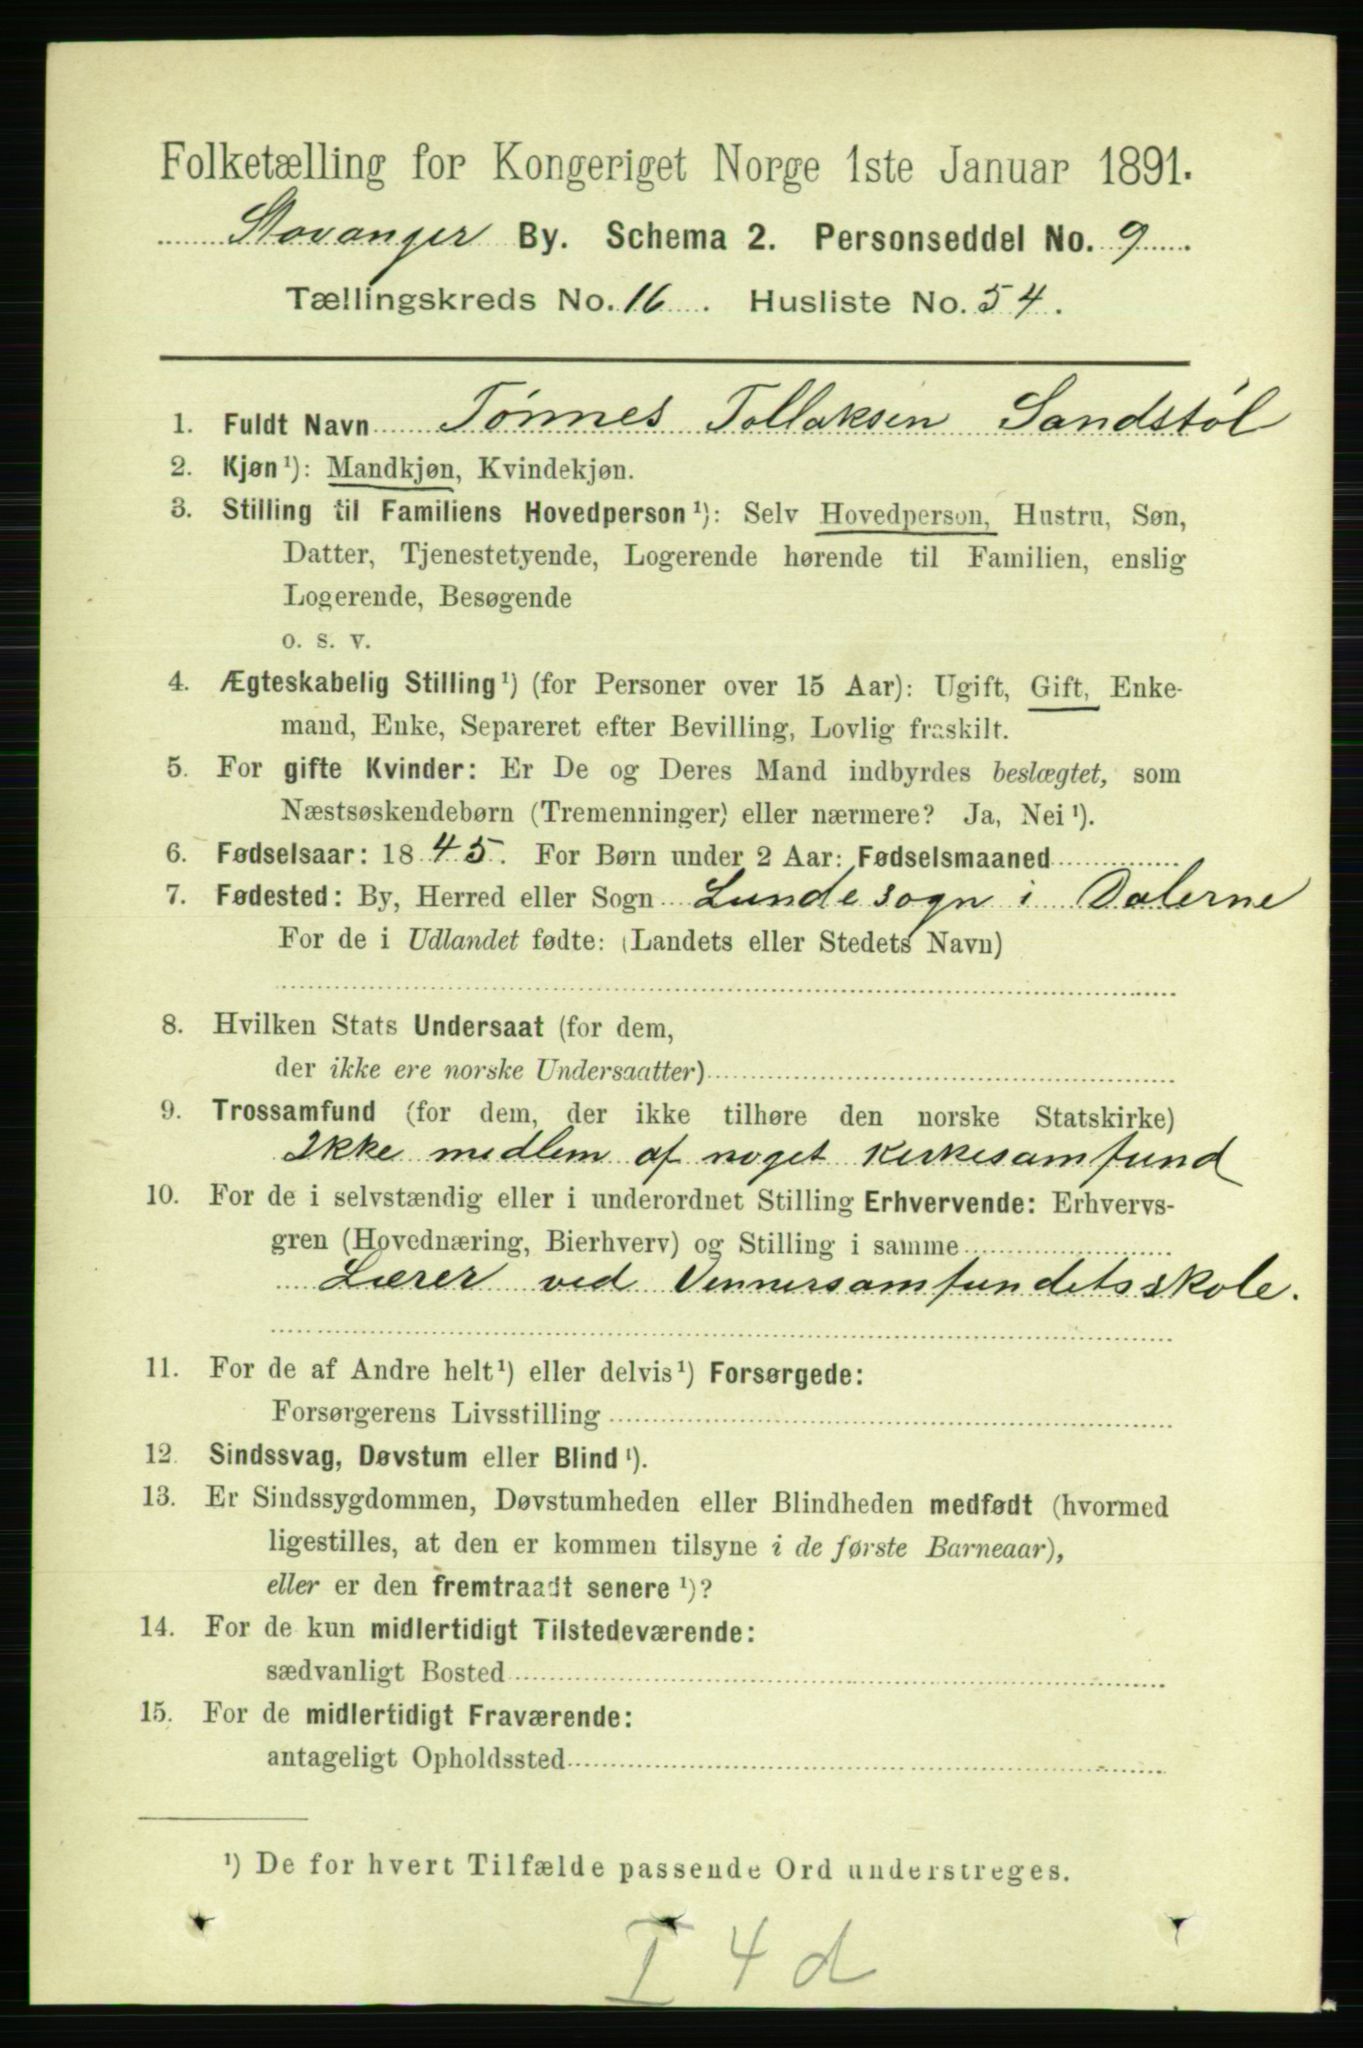 Folketælling for Kongeriget Norge 1ste Januar 1891.
Stavanger By. Schema 2. Personseddel No. 9
Tællingskreds No. 16. Husliste No. 54.
1. Fuldt Navn Tönnes Tollaksen Sandstöl
2. Kjøn¹): Mandkjøn, Kvindekjøn.
3. Stilling til Familiens Hovedperson¹): Selv Hovedperson, Hustru, Søn,
Datter, Tjenestetyende, Logerende hørende til Familien, enslig
Logerende, Besøgende
o. s. v.
4. Ægteskabelig Stilling¹) (for Personer over 15 Aar): Ugift, Gift, Enke-
mand, Enke, Separeret efter Bevilling, Lovlig fraskilt.
5. For gifte Kvinder: Er De og Deres Mand indbyrdes beslægtet, som
Næstsøskendebørn (Tremenninger) eller nærmere? Ja, Nei¹).
6. Fødselsaar: 1845. For Børn under 2 Aar: Fødselsmaaned
7. Fødested: By, Herred eller Sogn Lunde sogn i Dalerne
For de i Udlandet fødte: (Landets eller Stedets Navn)
8. Hvilken Stats Undersaat (for dem,
der ikke ere norske Undersaatter)
9. Trossamfund (for dem, der ikke tilhøre den norske Statskirke)
Ikke medlem af noget kirkesamfund
10. For de i selvstændig eller i underordnet Stilling Erhvervende: Erhvervs-
gren (Hovednæring, Bierhverv) og Stilling i samme
Lærer ved Vennersamfundets skole.
11. For de af Andre helt¹) eller delvis¹) Forsørgede:
Forsørgerens Livsstilling
12. Sindssvag, Døvstum eller Blind¹).
13. Er Sindssygdommen, Døvstumheden eller Blindheden medfødt (hvormed
ligestilles, at den er kommen tilsyne i de første Barneaar),
eller er den fremtraadt senere¹)?
14. For de kun midlertidigt Tilstedeværende:
sædvanligt Bosted
15. For de midlertidigt Fraværende:
antageligt Opholdssted
¹) De for hvert Tilfælde passende Ord understreges.
I 4 d